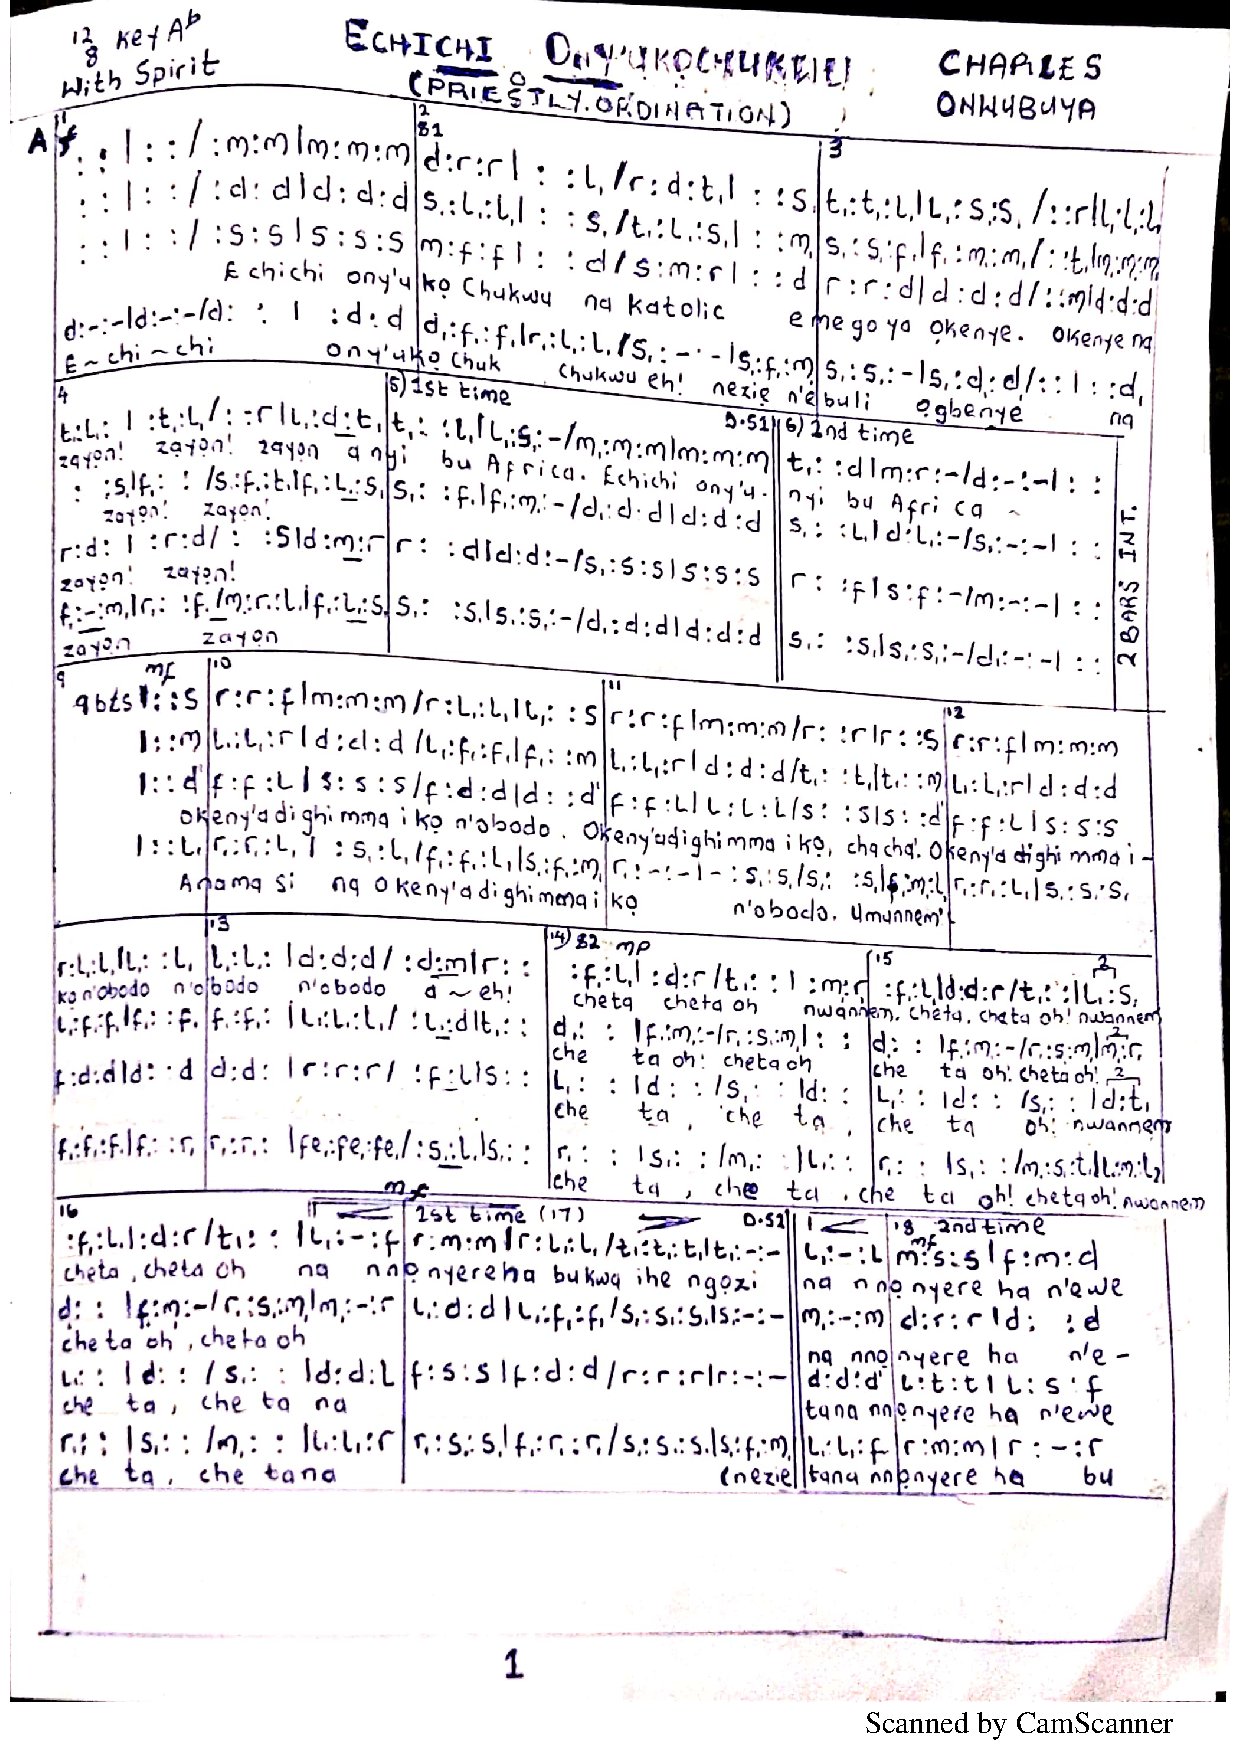 12/8 Key Ab
With Spirit
ECHICHI
CHARLES
ONWUBUYA
(PRIESTLY ORDINATION)
A f
1
: : | : : / : m : m | m : m : m
: : | : : / : d : d | d : d : d
: : | : : / : s : s | s : s : s
Echichi ony'u
d : - : - | d : - : - / d : : | : d : d
E ~ chi ~ chi ony'ukọ
2
S1
d : r : r | : : l, / r : d : t, | : : s,
s, : l, : l, | : : s, / t, : l, : s, | : : m,
m : f : f | : : d / s : m : r | : : d
kọ Chukwu na Katolic e
d, : f, : f, | r, : l, : l, / s, : - : - | s, : f, : m,
Chuk Chukwu eh! nezie n'e
3
t, : t, : l, | l, : s, : s, / : : r | l, : l, : l,
s, : s, : f, | f, : m, : m, / : : t, | m, : m, : m,
r : r : d | d : d : d / : : m | d : d : d
mego ya okenye. Okenye na
s, : s, : - | s, : d, : d, / : : | : : d,
buli egbenye na
4
t, : l, : | : t, : l, / : - : r | l, : d : t,
zayọn! zayọn! zayọn a nyi
: : s, | f, : : / s, : f, : t, | f, : l, : s,
zayọn! zayọn!
r : d : | : r : d / : : s | d : m : r
zayọn! zayọn!
f, : - : m, | r, : : f, / m, : r, : l, | f, : l, : s,
zayọn zayọn
5) 1st time D.S1
t, : : l, | l, : s, : - / m, : m : m | m : m : m
bu Africa. Echichi ony'u-
s, : : f, | f, : m, : - / d, : d : d | d : d : d
r : : d | d : d : - / s, : s : s | s : s : s
s, : : s, | s, : s, : - / d, : d : d | d : d : d
6) 2nd time
t, : : d | m : r : - / d : - : - | : :
nyi bu Afri ca ~
s, : : l, | d : l, : - / s, : - : - | : :
r : : f | s : f : - / m : - : - | : :
s, : : s, | s, : s, : - / d, : - : - | : :
2 BARS INT.
9 mf
9 bts | : : s
| : : m
| : : d'
| : : l,
10
r : r : f | m : m : m / r : l, : l, | l, : : s
l, : l, : r | d : d : d / l, : f, : f, | f, : : m
f : f : l | s : s : s / f : d : d | d : : d'
Okeny'adighi mma i kọ n'obodo. O
r, : r, : l, | : s, : l, / f, : f, : l, | s, : f, : m,
Anama si na Okeny'adighi mma i
11
r : r : f | m : m : m / r : : r | r : : s
l, : l, : r | d : d : d / t, : : t, | t, : : m
f : f : l | l : l : l / s : : s | s : : d'
keny'adighi mma i kọ, chacha. O
r, : - : - | - : s, : s, / s, : : s, | f, : m, : l,
kọ n'obodo. Umunnem'
12
r : r : f | m : m : m
l, : l, : r | d : d : d
f : f : l | s : s : s
keny'a dighi mma i -
r, : r, : l, | s, : s, : s,
r : l, : l, | l, : : l,
kọ n'obodo n'o
l, : f, : f, | f, : : f,
f : d : d | d : : d
f, : f, : f, | f, : : r,
13
l, : l, : | d : d : d / : d : m | r : :
bodo n'obodo a ~ eh!
f, : f, : | l, : l, : l, / : l, : d | t, : :
d : d : | r : r : r / : f : l | s : :
r, : r, : | fe, : fe, : fe, / : s, : l, | s, : :
14) S2 mp
: f, : l, | : d : r / t, : : | : m : r
cheta cheta oh nwannem,
d, : : | f, : m, : - / r, : s, : m, | : :
che ta oh! cheta oh
l, : : | d : : / s, : : | d : :
che ta , che ta ,
r, : : | s, : : / m, : : | l, : :
che ta , che ta ,
15
: f, : l, | d : d : r / t, : : | l, : s,
cheta, cheta oh! nwannem
d, : : | f, : m, : - / r, : s, : m, | m, : r,
che ta oh! cheta oh!
l, : : | d : : / s, : : | d : t,
che ta oh! nwannem
r, : : | s, : : / m, : s, : t, | l, : m, : l,
che ta oh! cheta oh! nwannem
16 mf
: f, : l, | : d : r / t, : : | l, : - : f
cheta , cheta oh na nnọ
d : : | f, : m, : - / r, : s, : m, | m, : - : r
cheta oh , cheta oh
l, : : | d : : / s, : : | d : d : l
che ta , che ta na
r, : : | s, : : / m, : : | l, : l, : r
che ta , che tana
1st time (17) D.S2
r : m : m | r : l, : l, / t, : t, : t, | t, : - : -
nyere ha bukwa ihe ngozi
l, : d : d | l, : f, : f, / s, : s, : s, | s, : - : -
f : s : s | f : d : d / r : r : r | r : - : -
r, : s, : s, | f, : r, : r, / s, : s, : s, | s, : f, : m,
(nezie
l, : - : l
na nnọ
m, : - : m
na nnọ
d : d : d'
tana nnọ
l, : l, : f
tana nnọ
18 2nd time
mf
m : s : s | f : m : d
nyere ha n'ewe
d : r : r | d : : d
nyere ha n'e -
l : t : t | l : s : f
nyere ha n'ewe
r : m : m | r : - : r
nyere ha bu
1
Scanned by CamScanner